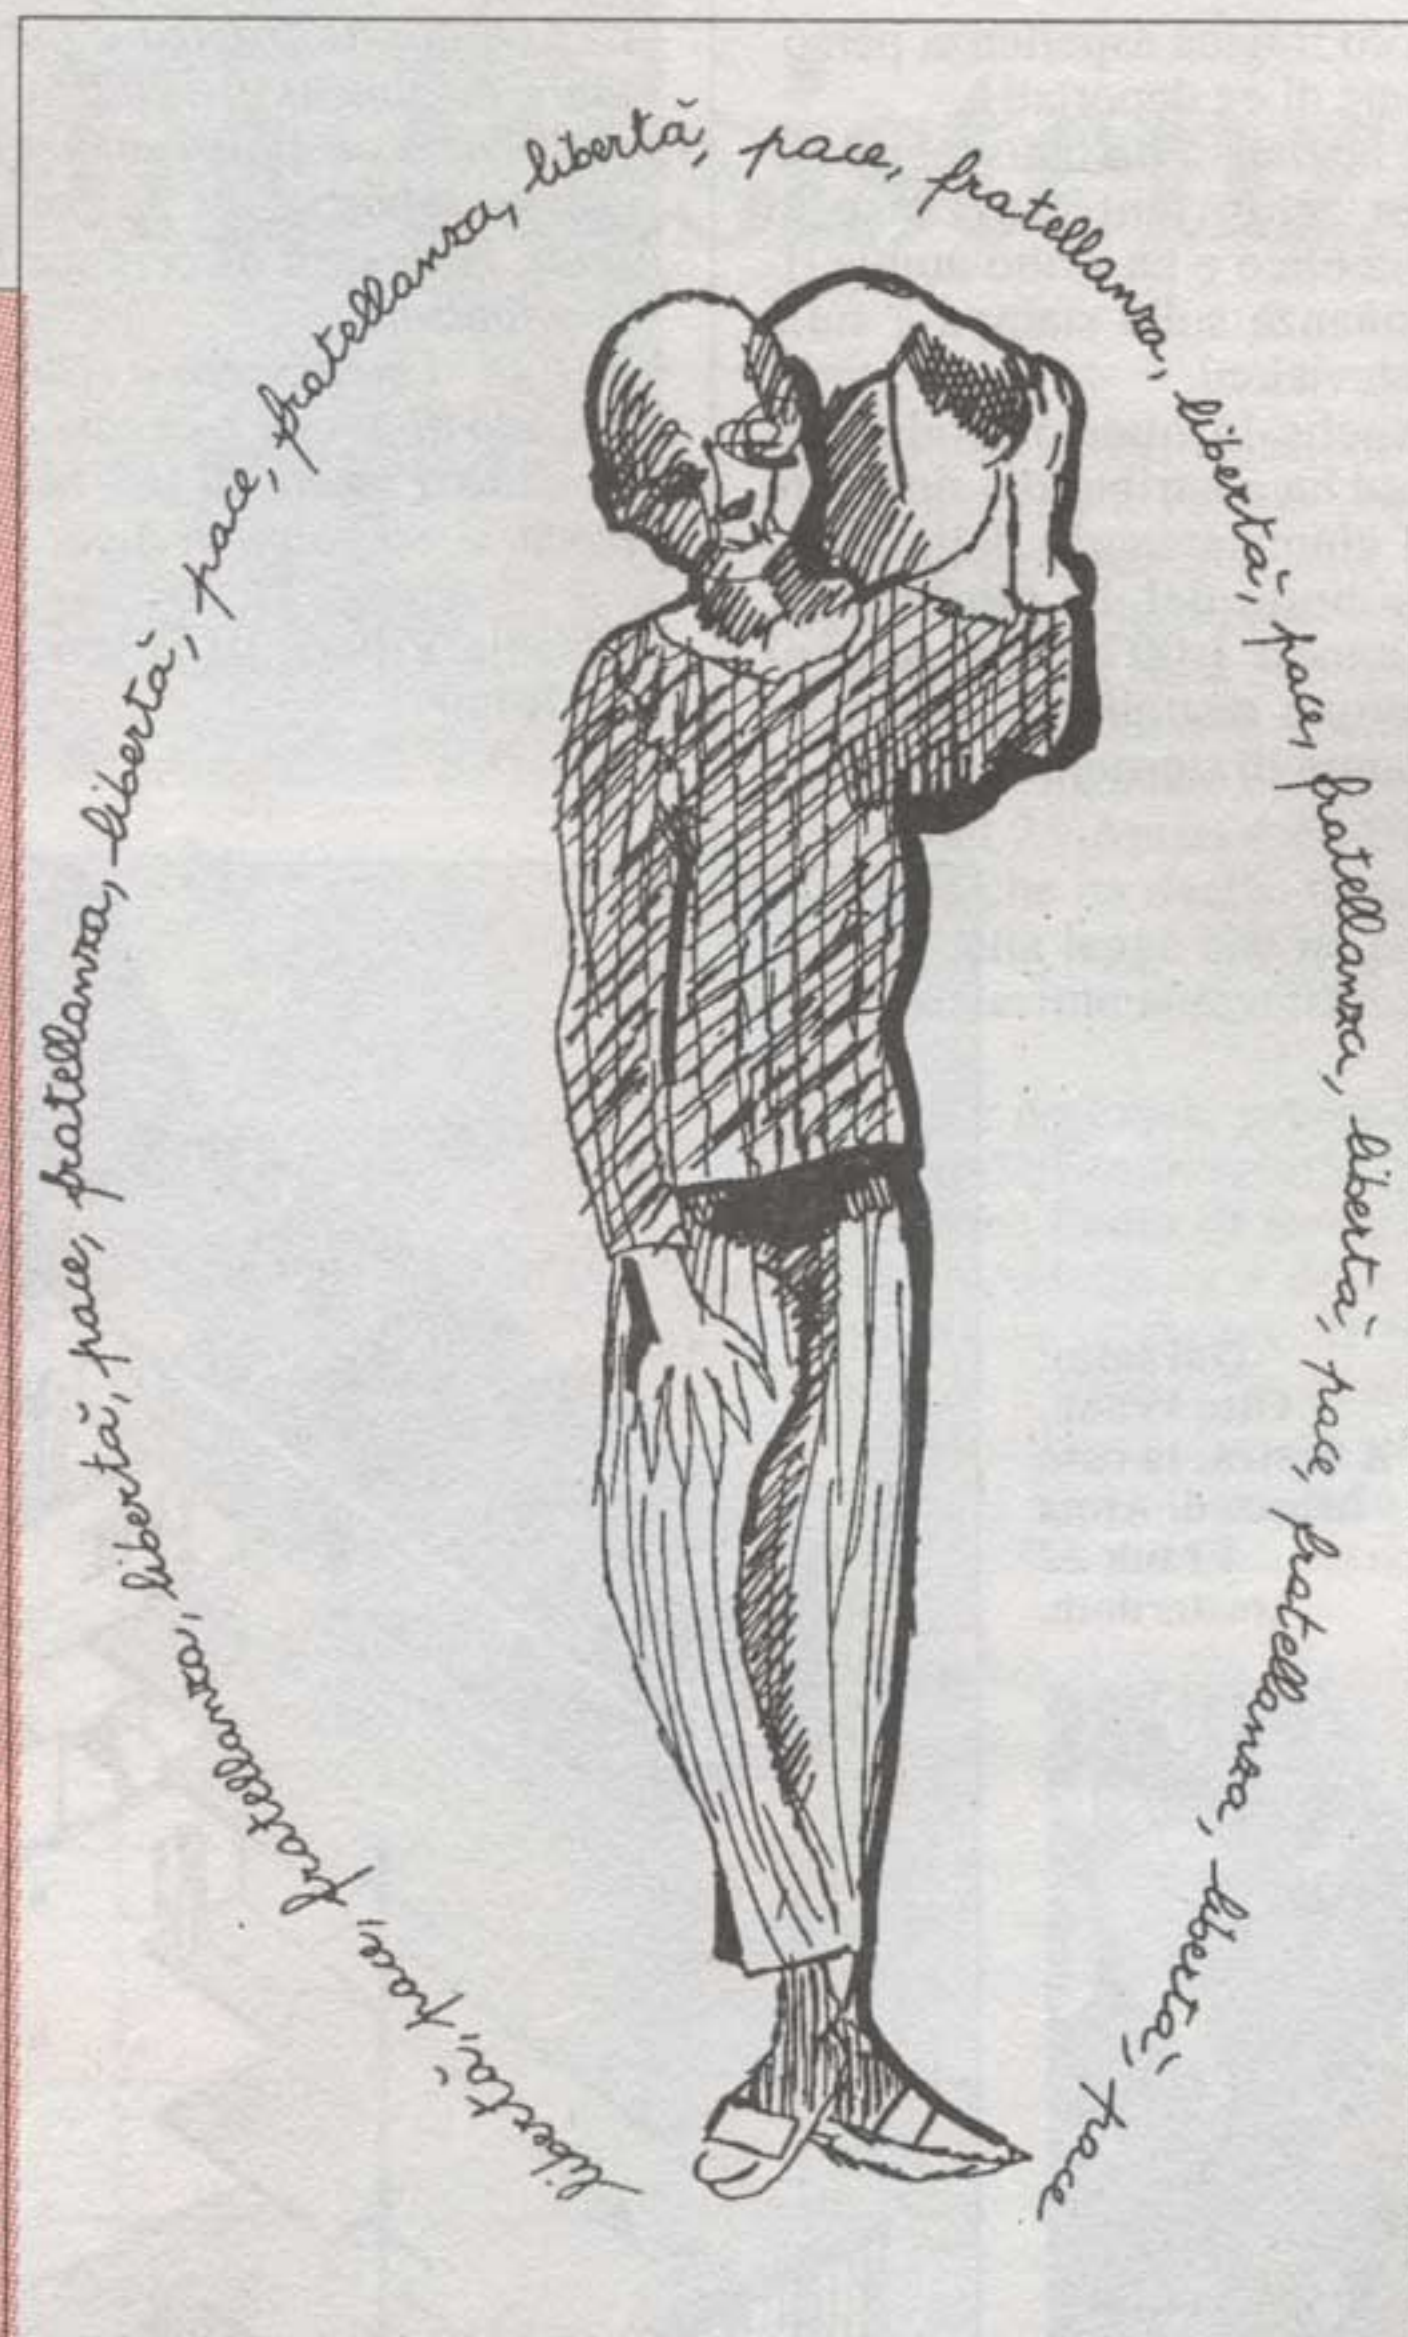 libertà, pace, fratellanza, libertà, pace, fratellanza, libertà, pace, fratellanza, libertà, pace, fratellanza, libertà, pace, fratellanza, libertà, pace, fratellanza, libertà, pace